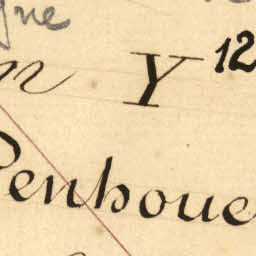 gne
n Y 12
Penhoue